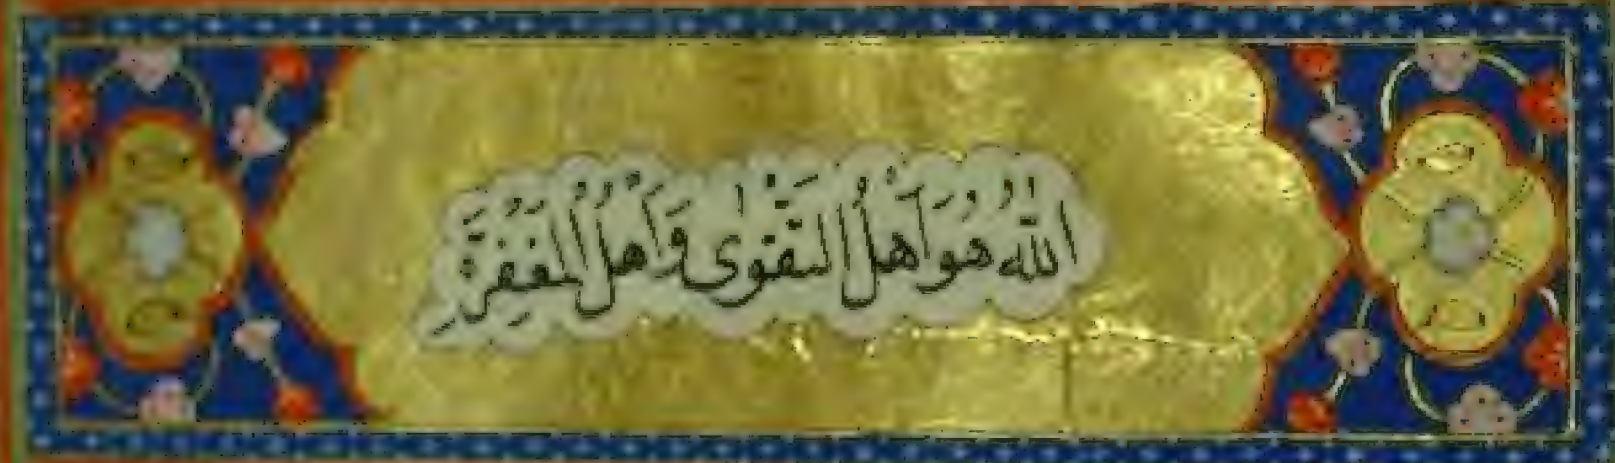 اللّٰهُ هُوَ أَهْلُ التَّقْوٰى وَأَهْلُ الْمَغْفِرَةِ